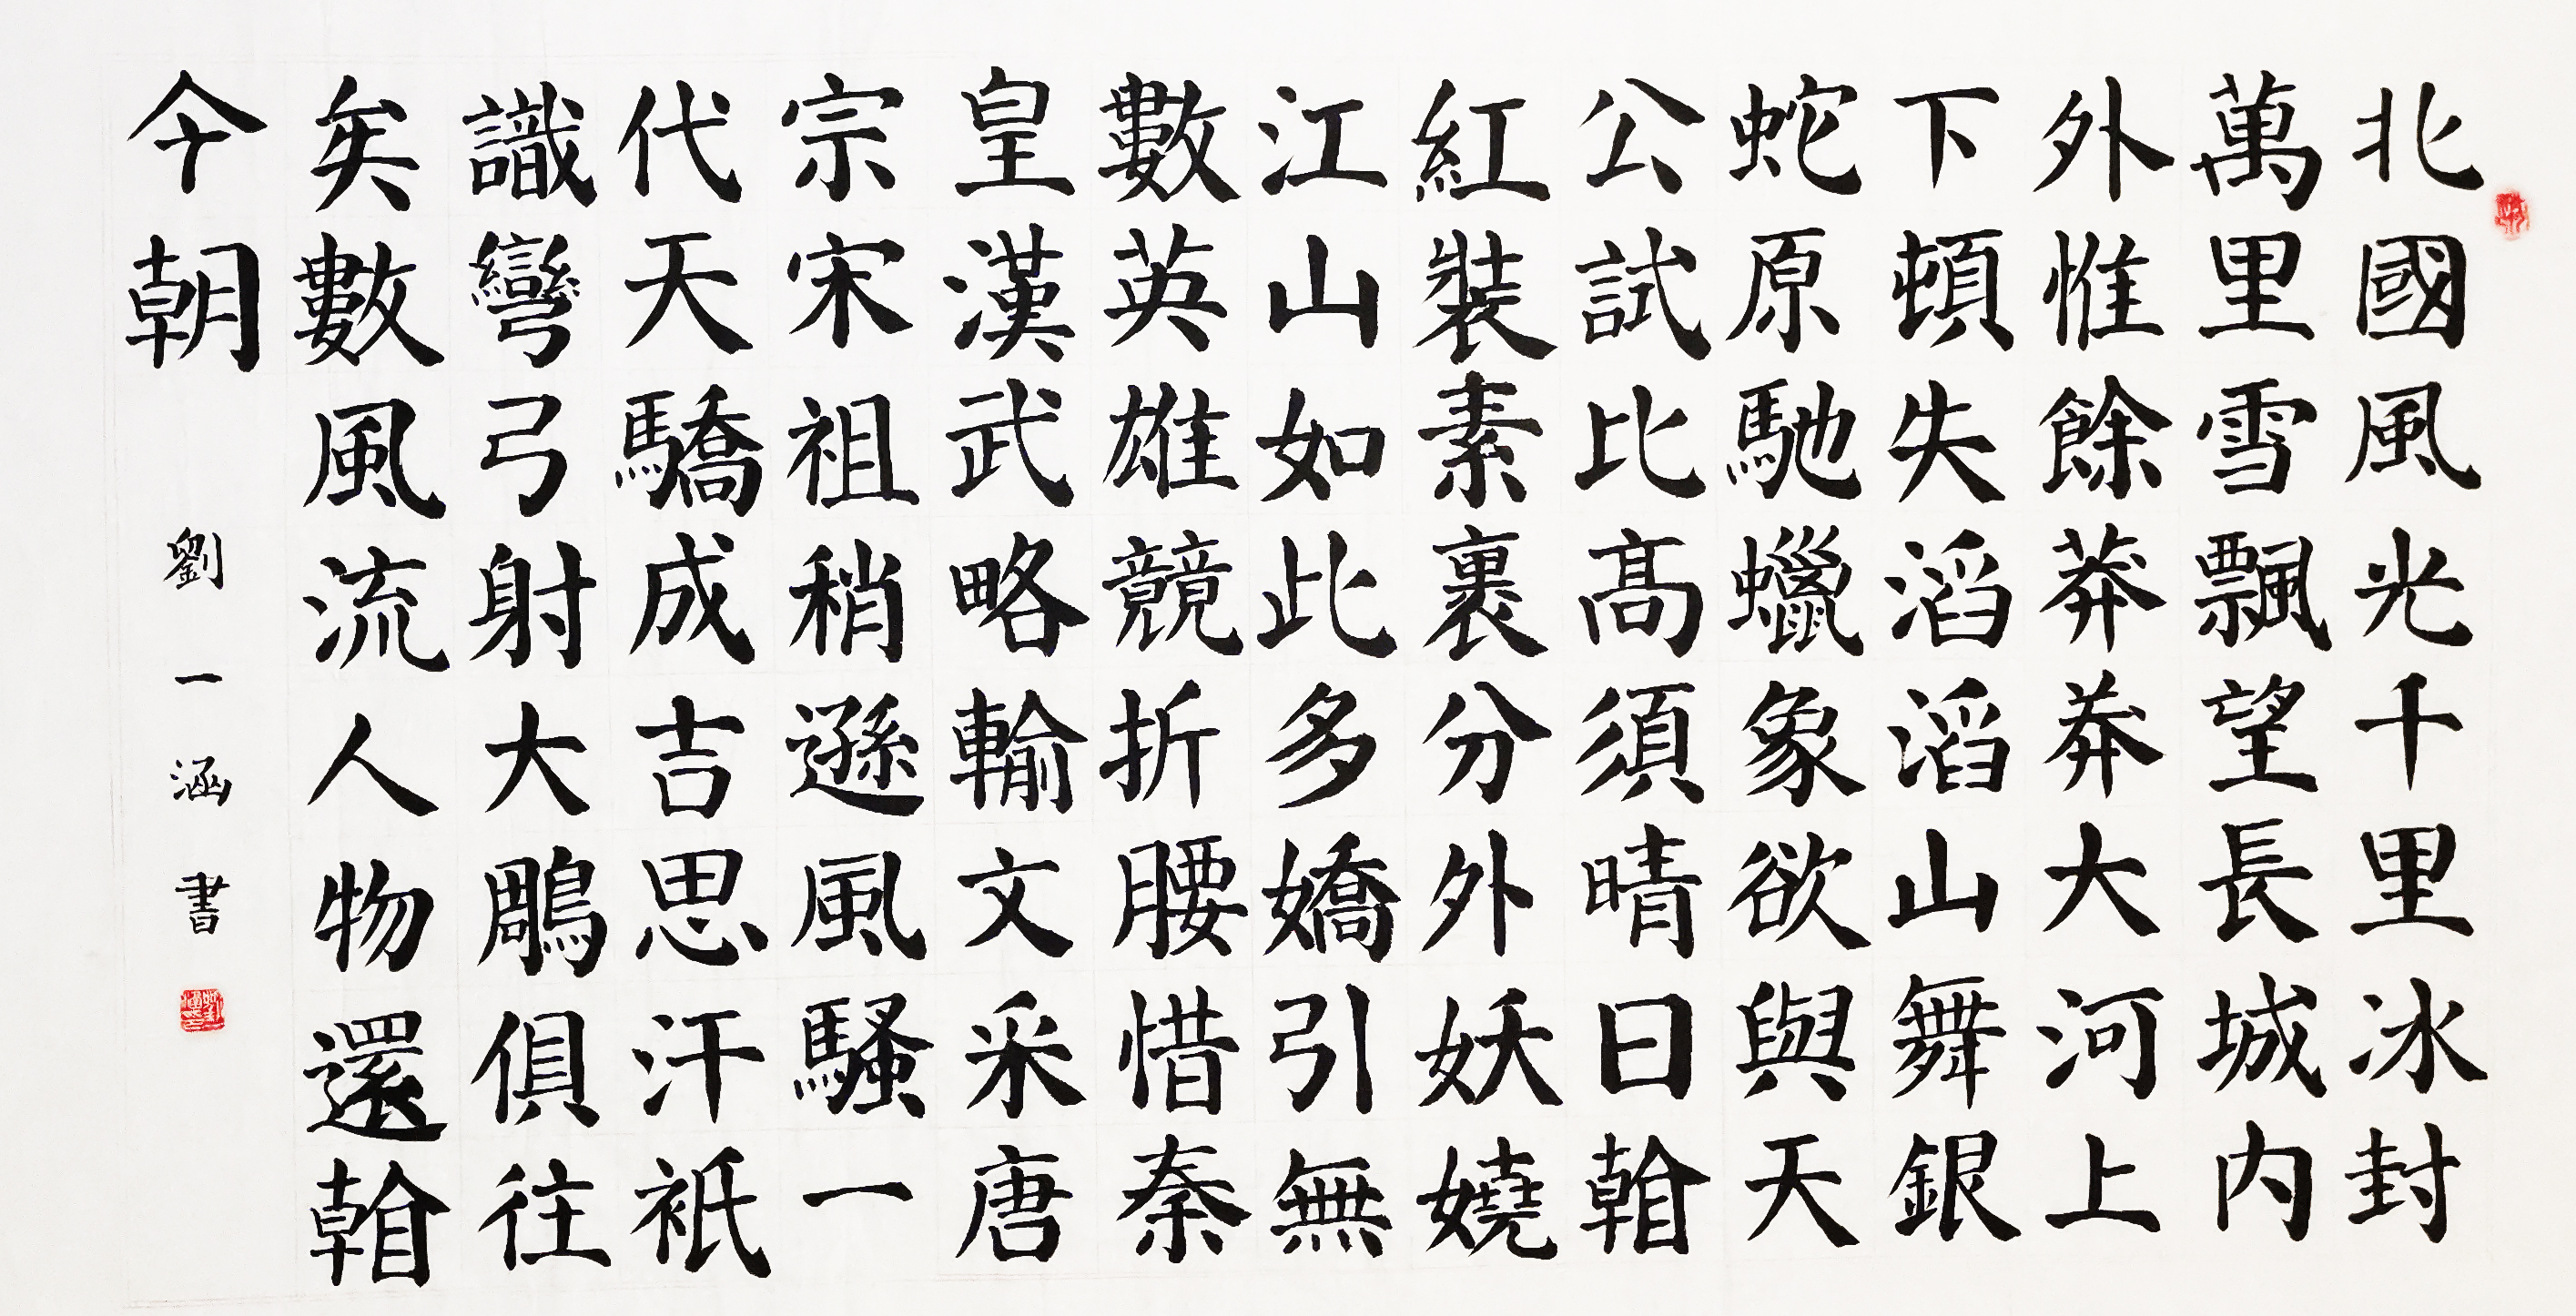 北國風光千里冰封
萬里雪飄望長城内
外惟餘莽莽大河上
下頓失滔滔山舞銀
蛇原馳蠟象欲與天
公試比髙須晴日
紅裝素裹分外妖嬈
江山如此多嬌引無
數英雄競折腰惜秦
皇漢武略輸文采唐
宗宋祖稍遜風騷一
代天驕成吉思汗衹
識彎弓射大鵰俱往
矣數風流人物還
今朝
劉一涵書